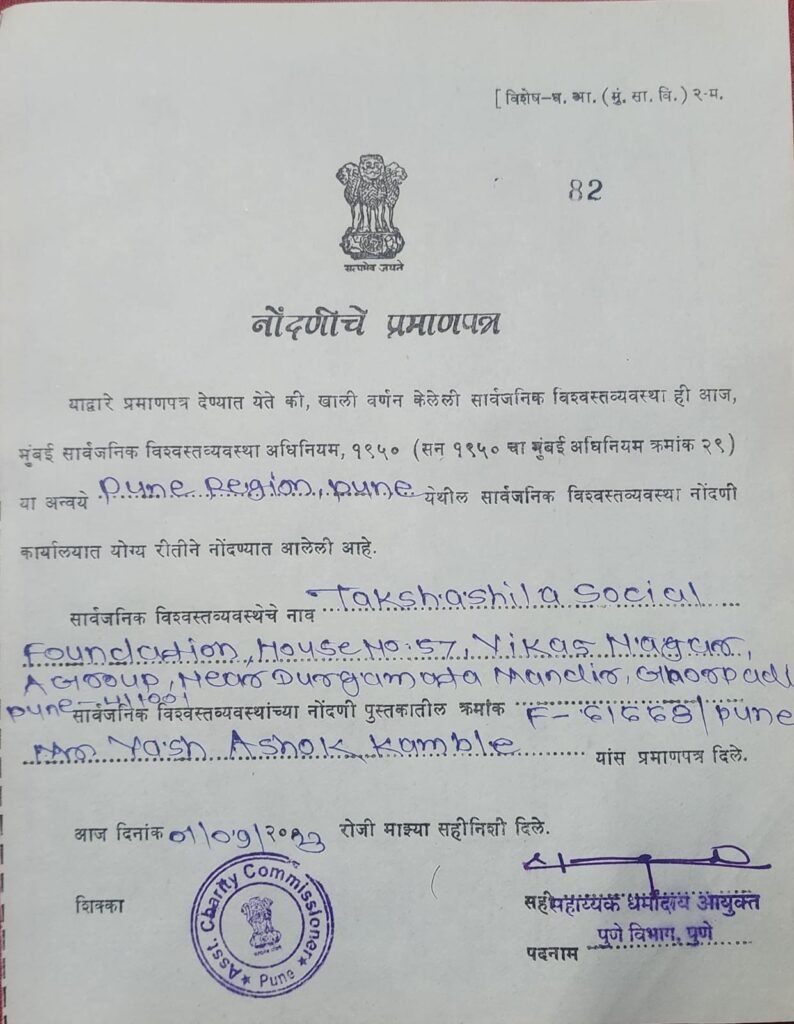 [ विशेष-ध. आ. ( मुं. सा. वि. ) २-म.
82
सत्यमेव जयते
नोंदणीचे प्रमाणपत्र
याद्वारे प्रमाणपत्र देण्यात येते की, खाली वर्णन केलेली सार्वजनिक विश्वस्तव्यवस्था ही आज,
मुंबई सार्वजनिक विश्वस्तव्यवस्था अधिनियम, १९५० (सन १९५० चा मुंबई अधिनियम क्रमांक २९)
या अन्वये Pune Region, Pune येथील सार्वजनिक विश्वस्तव्यवस्था नोंदणी
कार्यालयात योग्य रीतीने नोंदण्यात आलेली आहे.
सार्वजनिक विश्वस्तव्यवस्थेचे नाव Takshashila Social
Foundation, House No:57, Vikas Nagar,
A Group, Near Durgamata Mandir, Ghorpadi
Pune-411001
सार्वजनिक विश्वस्तव्यवस्थांच्या नोंदणी पुस्तकातील क्रमांक F- /Pune
Yash Ashok Kamble यांस प्रमाणपत्र दिले.
आज दिनांक 01/09/२० रोजी माझ्या सहीनिशी दिले.
शिक्का
Asst. Charity Commissioner
Pune
सही
सहाय्यक धर्मादाय आयुक्त
पुणे विभाग, पुणे
पदनाम